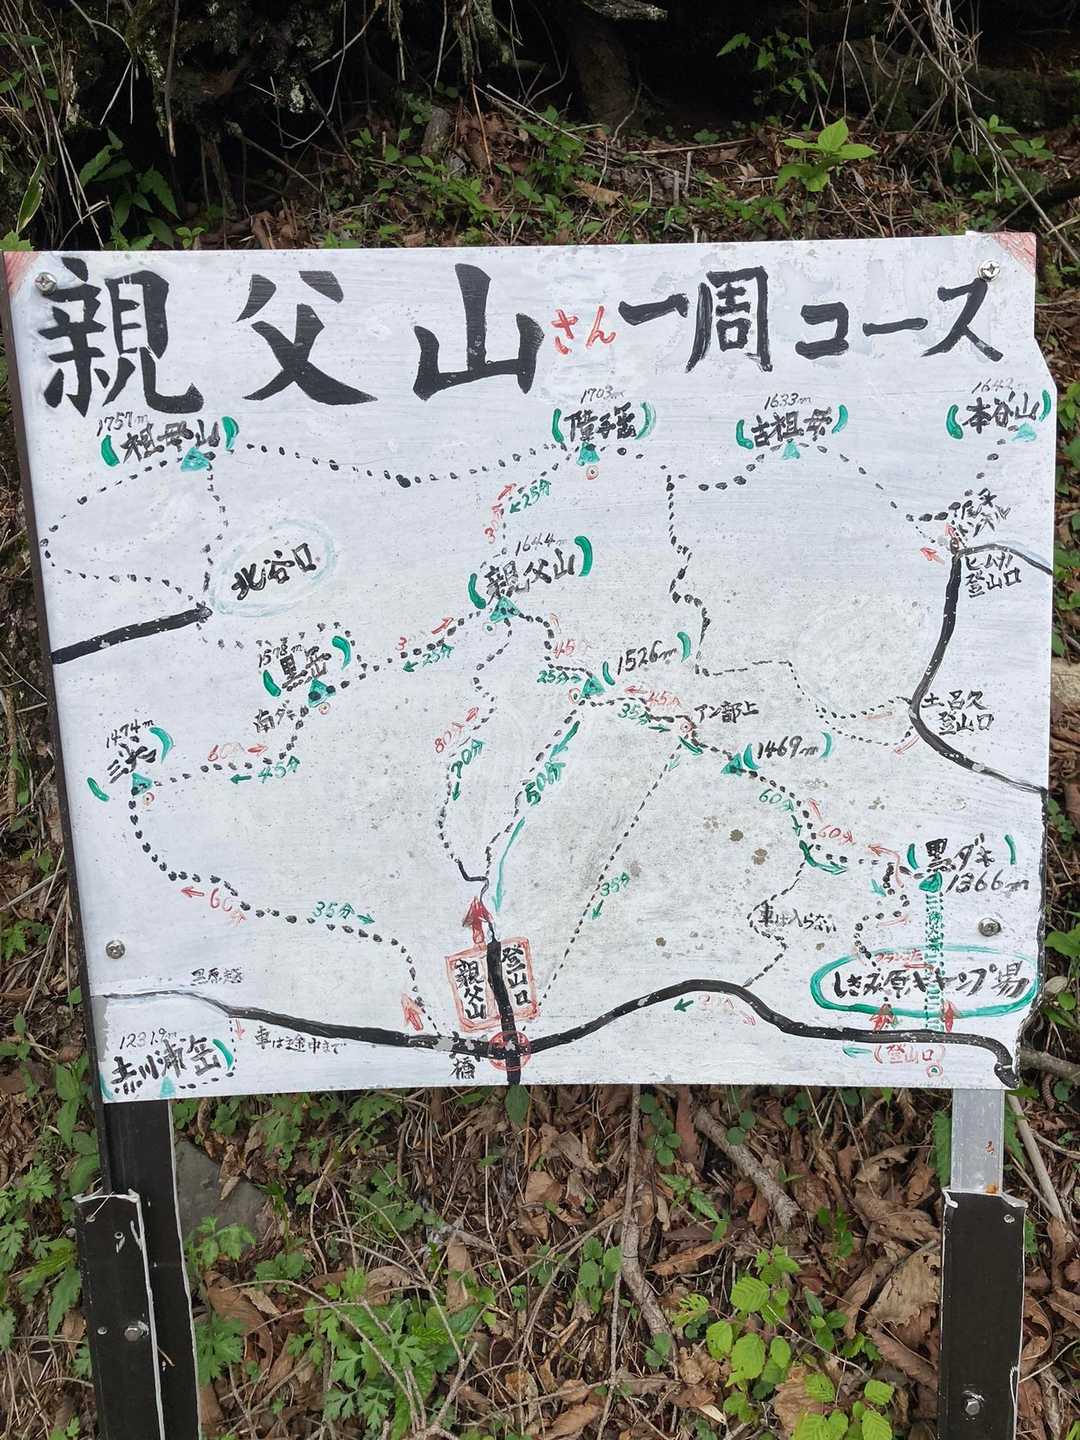 親父山さん一周コース
1757m
祖母山
1703m
障子岳
1633m
古祖母
1642m
本谷山
25分
30分
尾平
トンネル
1644m
親父山
北谷口
登山口
25分
45分
25分
1578m
黒岳
1526m
南ダキ
45分
35分
アン部上
土呂久
登山口
1474m
三尖
60分
45分
80分
70分
50分
1469m
60分
60分
黒ダキ
1366m
35分
60分
35分
車は入らない
しきみ原キャンプ場
登山口
親父山
黒原越
(登山口)
車は途中まで
橋
1231.9m
赤川浦岳